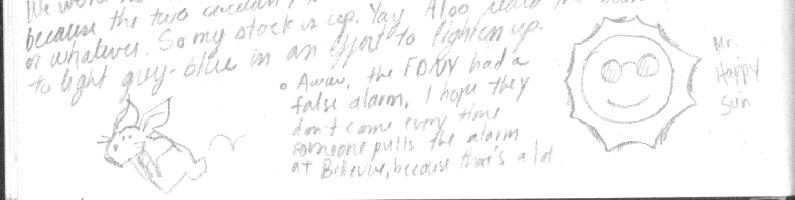 because the two couldn't
or whatever. So my stock is up. Yay. Also
to light grey-blue in an effort to lighten up.
Awww, the FDNY had a
false alarm. I hope they
don't come every time
someone pulls the alarm
at Bellevue, because that's a lot.
Mr.
Happy
Sun